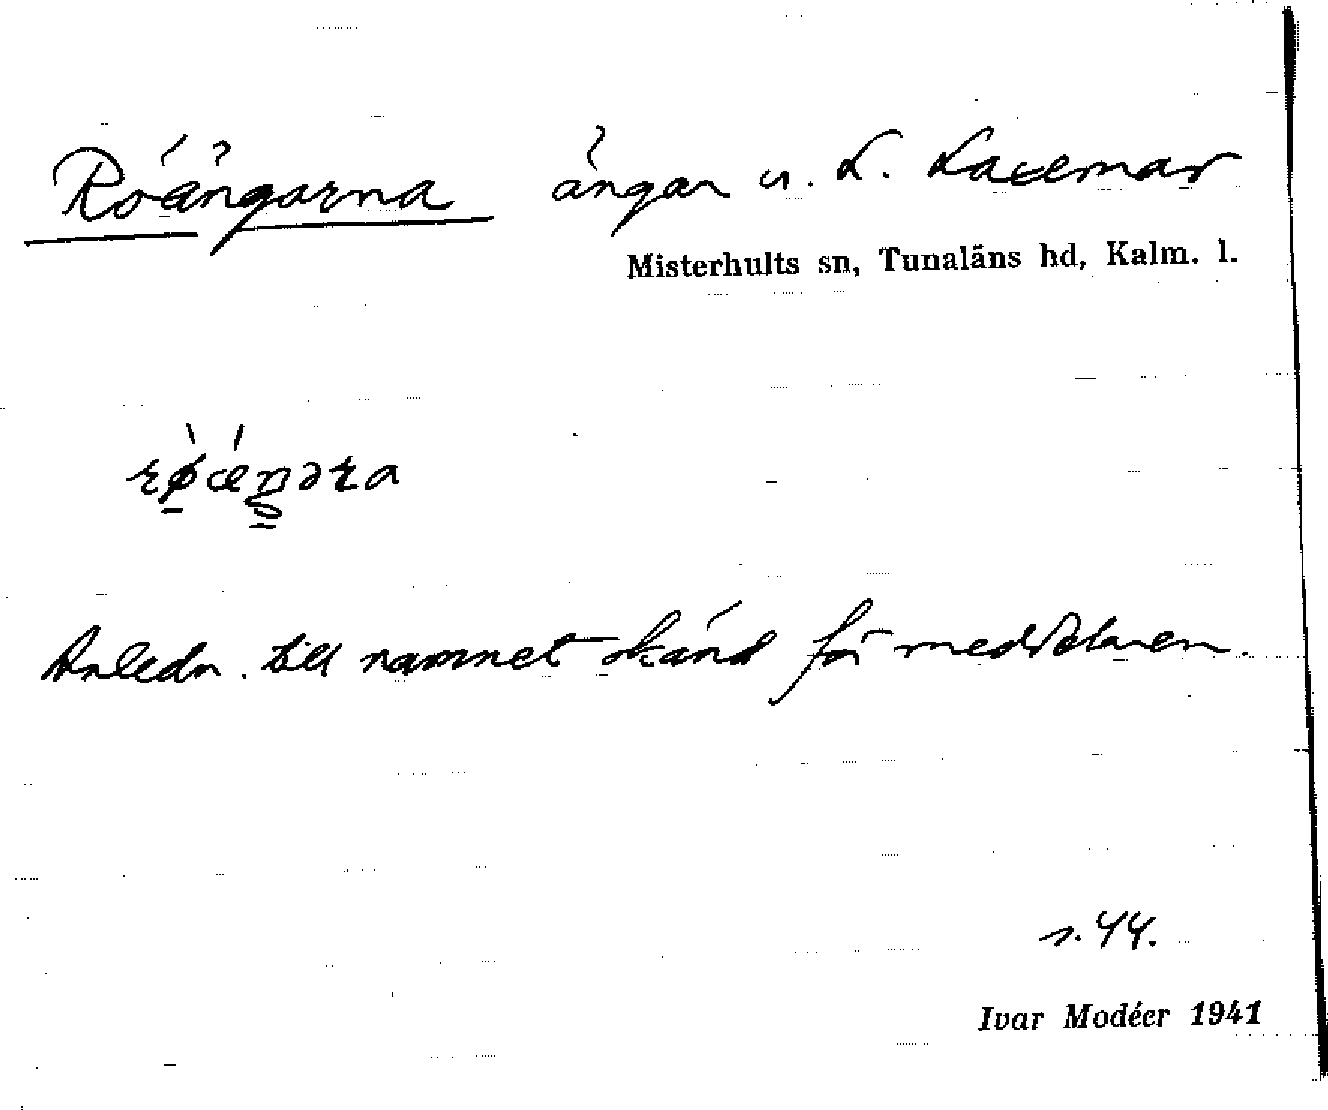 Röängarna ängar u. L. Laxemar
Misterhults sn, Tunaläns hd, Kalm. l.
Anledn. till namnet okänd för meddelaren.
s. 44.
Ivar Modéer 1941